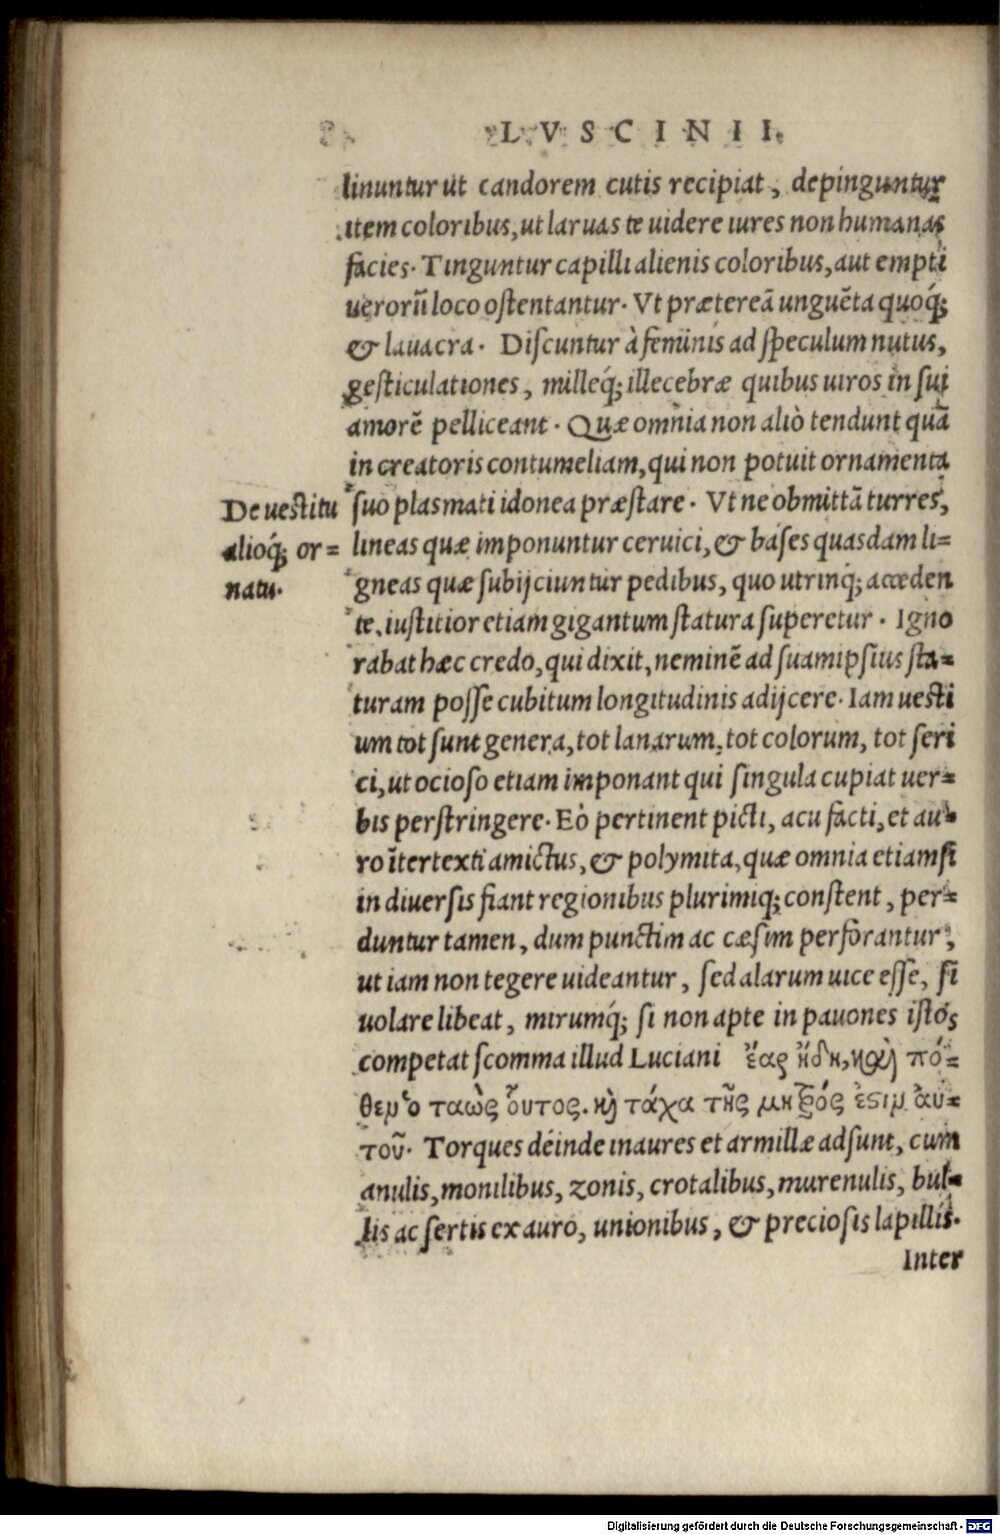 LVSCINII.
linuntur ut candorem cutis recipiat, depinguntur
item coloribus, ut laruas te uidere iures non humanas
facies. Tinguntur capilli alienis coloribus, aut empti
uerorũ loco ostentantur. Vt prætereã unguẽta quoq́;
& lauacra. Discuntur à feminis ad speculum nutus,
gesticulationes, milleq́; illecebræ quibus uiros in sui
amorẽ pelliceant. Quæ omnia non aliò tendunt quã
in creatoris contumeliam, qui non potuit ornamenta
De uestitu
alioq́; or=
natu.
suo plasmati idonea præstare. Vt ne obmittã turres,
lineas quæ imponuntur ceruici, & bases quasdam li=
gneas quæ subijciuntur pedibus, quo utrinq́; acceden
te, iustitior etiam gigantum statura superetur. Igno
rabat hæc credo, qui dixit, neminẽ ad suamipsius sta=
turam posse cubitum longitudinis adijcere. Iam uesti
um tot sunt genera, tot lanarum, tot colorum, tot seri
ci, ut ocioso etiam imponant qui singula cupiat uer=
bis perstringere. Eò pertinent picti, acu facti, et au=
ro ĩtertexti amictus, & polymita, quæ omnia etiamsi
in diuersis fiant regionibus plurimiq; constent, per=
duntur tamen, dum punctim ac cæsim perforantur,
ut iam non tegere uideantur, sed alarum uice esse, si
uolare libeat, mirumq́; si non apte in pauones istos
competat scomma illud Luciani ἔας ἤδη, καὶ πό=
θεν ὁ ταὼς οὗτος. καὶ τάχα τῆς μητρός ἐστιν αὐ=
τοῦ. Torques déinde inaures et armillæ adsunt, cum
anulis, monilibus, zonis, crotalibus, murenulis, bul=
lis ac sertis ex auro, unionibus, & preciosis lapillis.
Inter
Digitalisierung gefördert durch die Deutsche Forschungsgemeinschaft - DFG